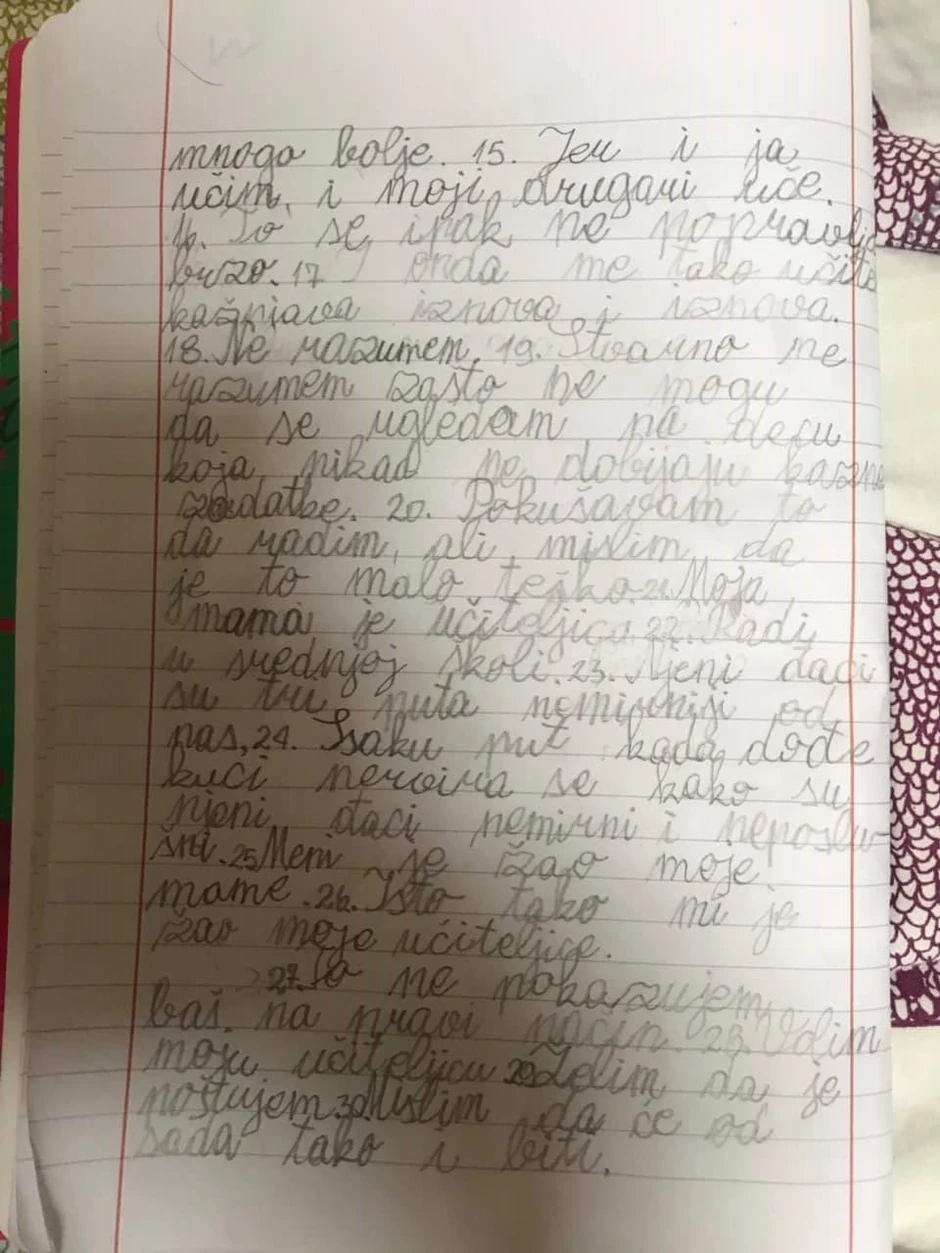 mnogo bolje. 15. Jer i ja
učim, i moji drugari uče.
16. To se ipak ne popravlja
brzo. 17 I onda me tako učite
kažnjava iznova i iznova.
18. Ne razumem. 19. Stvarno ne
razumem zašto ne mogu
da se ugledam na decu
koja nikad ne dobijaju kazne
zadatke. 20. Pokušavam to
da radim, ali mislim da
je to malo teško. 21. Moja
mama je učiteljica. 22. Radi
u srednjoj školi. 23. Njeni đaci
su tri puta nemirniji od
nas, 24. Svaku put kada dođe
kući nervira se kako su
njeni đaci nemirni i neposlu
šni. 25 Meni je žao moje
mame. 26. Isto tako mi je
žao moje učiteljice.
27. To ne pokazujem
baš na pravi način. 28. Volim
moju učiteljicu 29 Želim da je
poštujem. 30 Mislim da će od
sada tako i biti.